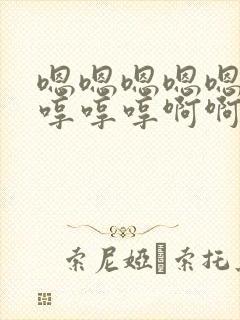 嗯嗯嗯嗯嗯
哼哼哼啊啊
索尼娅 索托